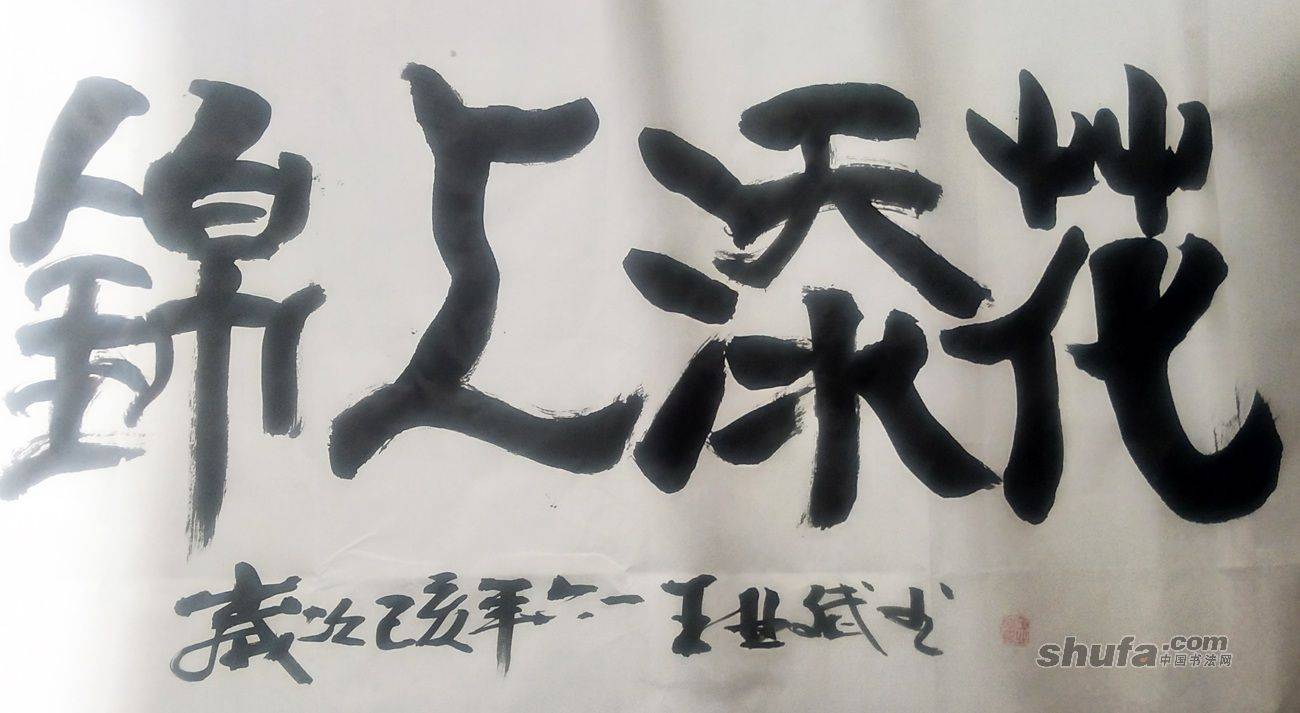 錦上添花
歲次己亥年六一王 斌书
shufa.com
中国书法网